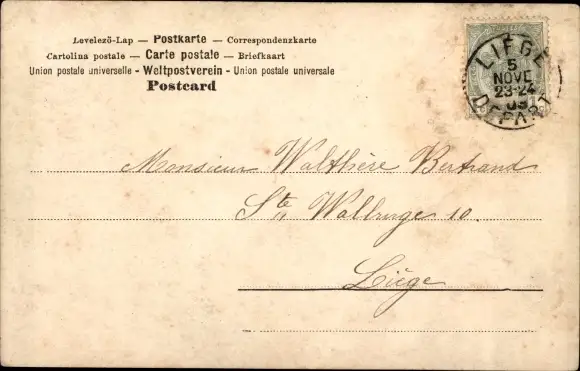 Levelező-Lap — Postkarte — Correspondenzkarte
Cartolina postale — Carte postale — Briefkaart
Union postale universelle - Weltpostverein - Union postale universale
Postcard
LIEGE
5
NOVE
23-24
03
DEPART
Monsieur Walthère Bertrand
Ste Walburge 10.
Liège